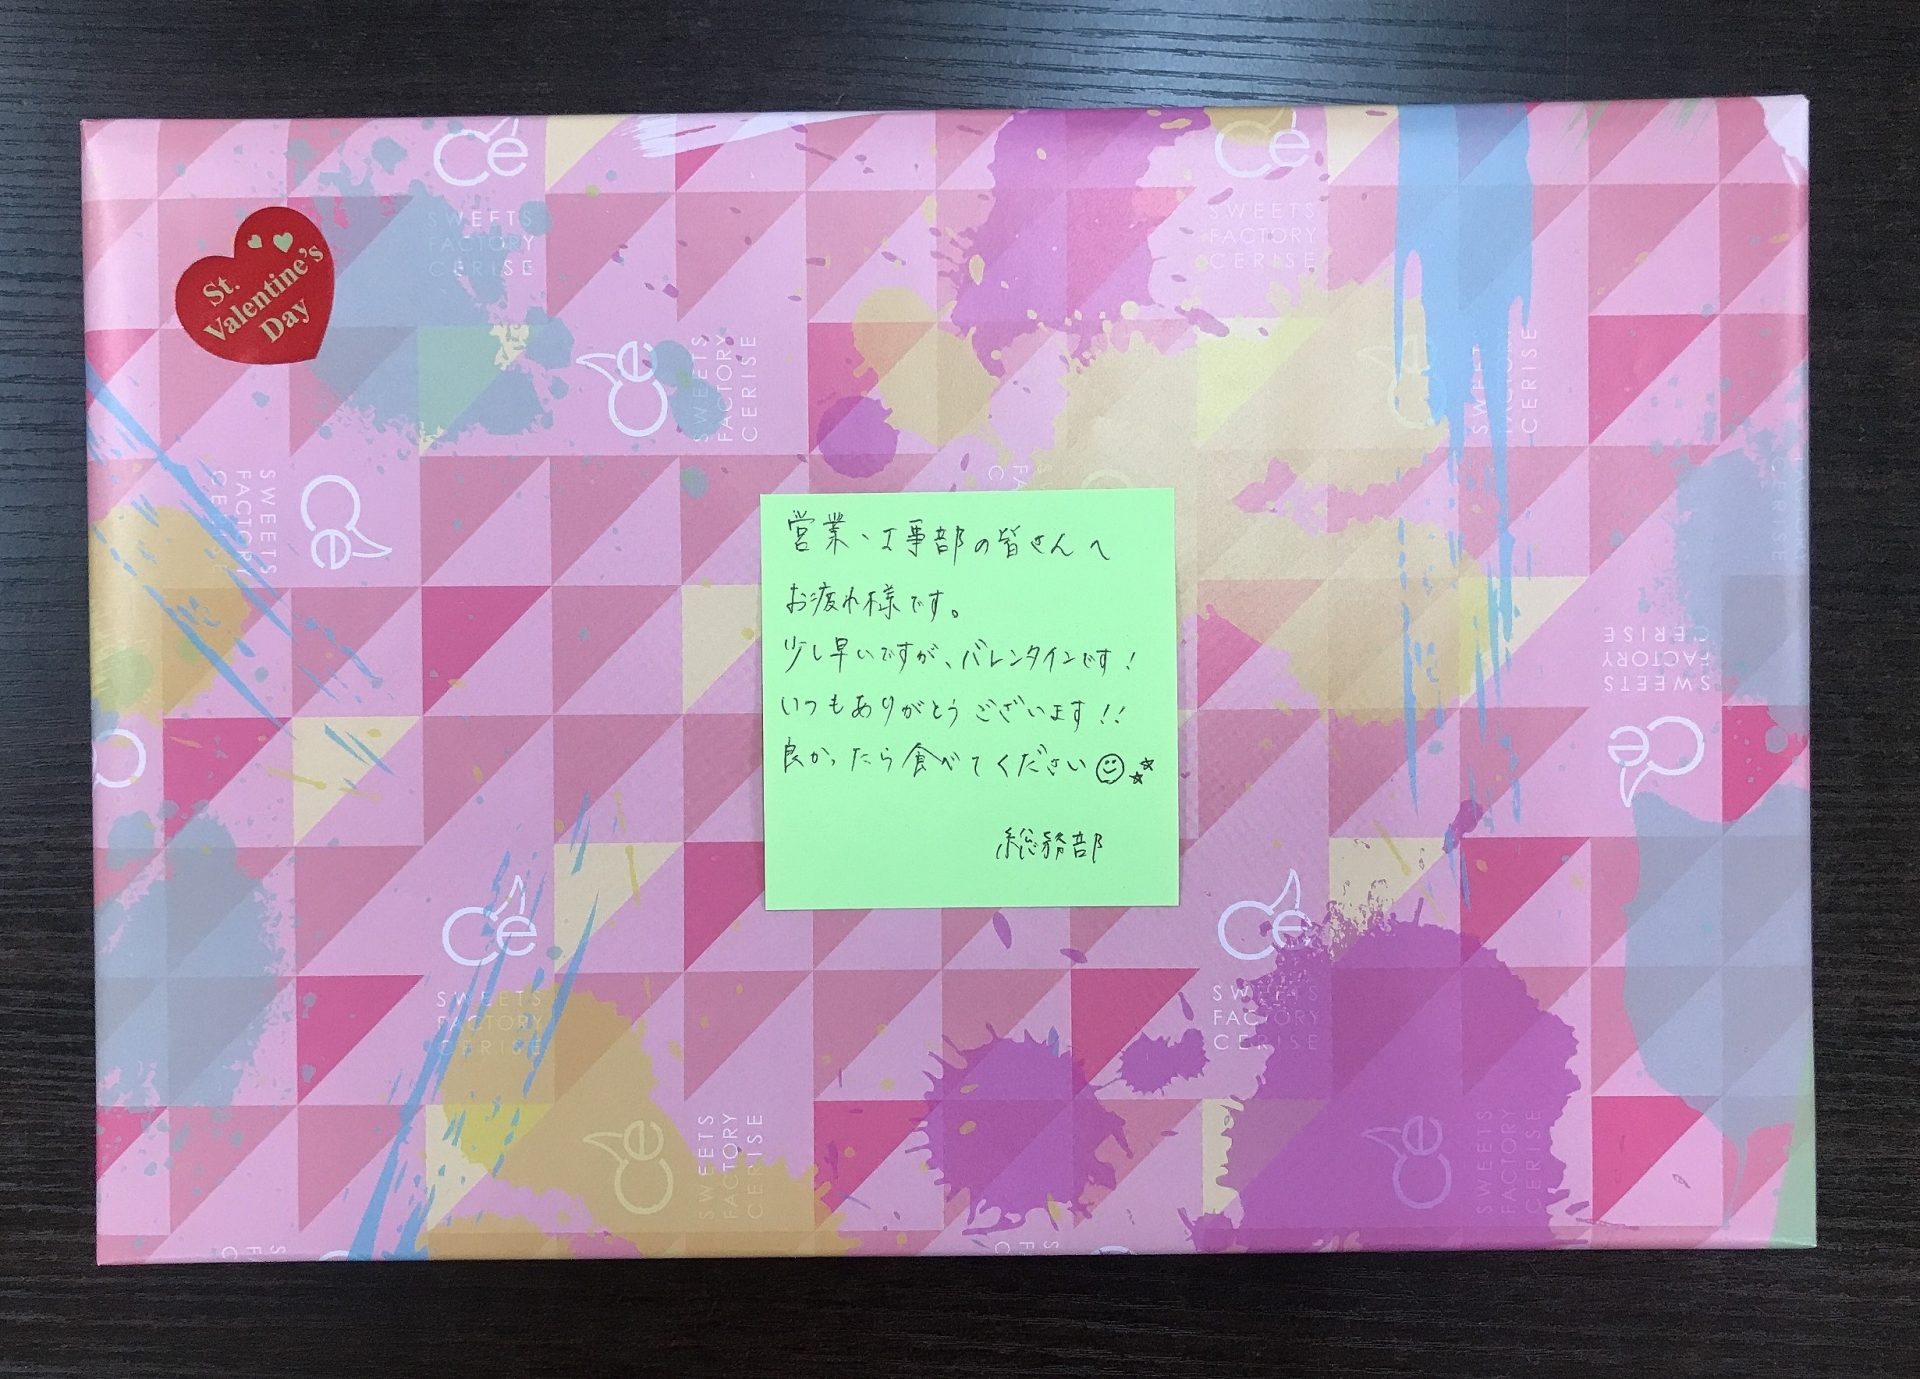 St.
Valentine's
Day
Ce
SWEETS
FACTORY
CERISE
Ce
SWEETS
FACTORY
CERISE
Ce
SWEETS
FACTORY
CERISE
Ce
SWEETS
FACTORY
CERISE
Ce
SWEETS
FACTORY
CERISE
営業、工事部の皆さんへ
お疲れ様です。
少し早いですが、バレンタインです!
いつもありがとうございます!!
良かったら食べてください
総務部
SWEETS
FACTORY
CERISE
Ce
Ce
SWEETS
FACTORY
CERISE
Ce
SWEETS
FACTORY
CERISE
Ce
SWEETS
FACTORY
CERISE
Ce
SWEETS
FACTORY
CERISE